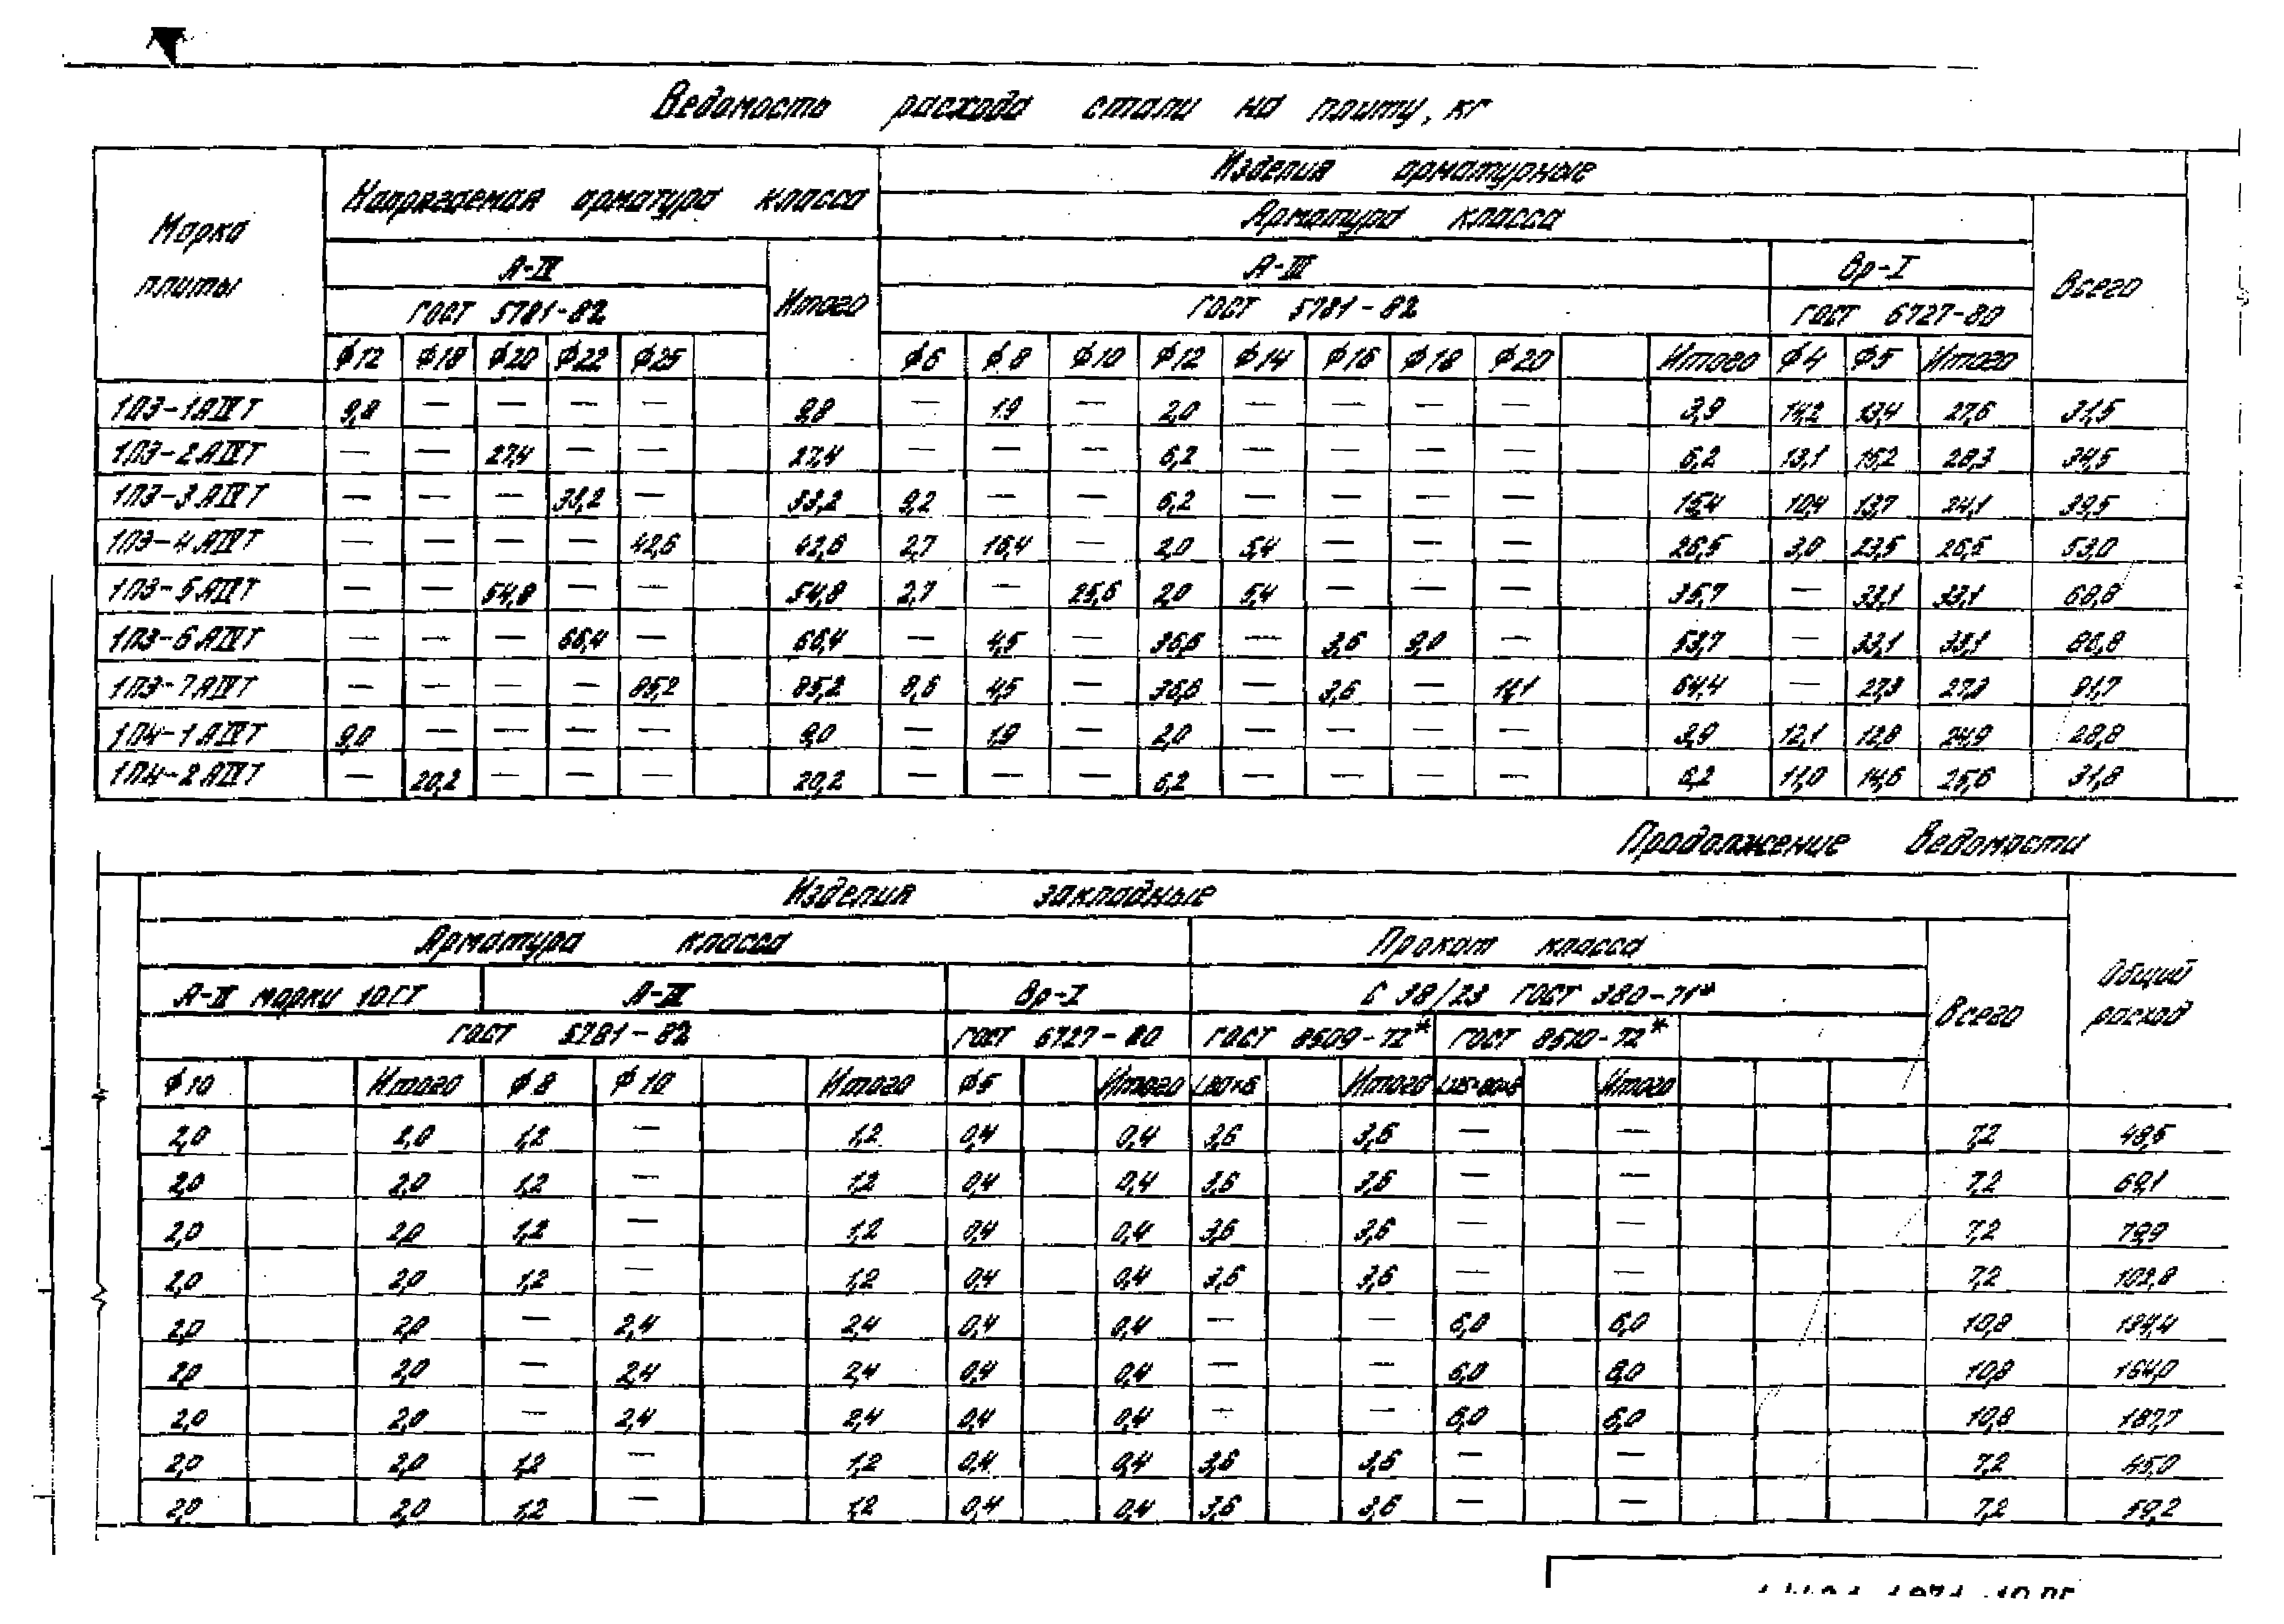 Ведомость расхода стали на плиту, кг
Марка плиты
Напрягаемая арматура класса
Изделия арматурные
Арматура класса
А-IV
Итого
А-III
Вр-I
Всего
ГОСТ 5781-82
ГОСТ 5781-82
ГОСТ 6727-80
ф12 ф18 ф20 ф22 ф25 ф6 ф8 ф10 ф12 ф14 ф16 ф18 ф20 Итого ф4 ф5 Итого
1П3-1АIVТ 9,8 — — — — 9,8 — 1,9 — 2,0 — — — — 3,9 14,2 13,4 27,6 31,5
1П3-2АIVТ — — 27,4 — — 27,4 — — — 6,2 — — — — 6,2 13,1 15,2 28,3 34,5
1П3-3АIVТ — — — 33,2 — 33,2 9,2 — — 6,2 — — — — 15,4 10,4 13,7 24,1 39,5
1П3-4АIVТ — — — — 42,6 42,6 2,7 16,4 — 2,0 5,4 — — — 26,5 3,0 23,5 26,5 53,0
1П3-5АIVТ — — 54,8 — — 54,8 2,7 — 25,6 2,0 5,4 — — — 35,7 — 33,1 33,1 68,8
1П3-6АIVТ — — — 66,4 — 66,4 — 4,5 — 36,6 — 3,6 9,0 — 53,7 — 33,1 33,1 86,8
1П3-7АIVТ — — — — 85,2 85,2 8,6 4,5 — 36,6 — 3,6 — 11,1 64,4 — 27,3 27,3 91,7
1П4-1АIVТ 9,0 — — — — 9,0 — 1,9 — 2,0 — — — — 3,9 12,1 12,8 24,9 28,8
1П4-2АIVТ — 20,2 — — — 20,2 — — — 6,2 — — — — 6,2 11,0 14,6 25,6 31,8
Продолжение ведомости
Изделия закладные
Арматура класса
Прокат класса
Всего
Общий расход
А-II марки 10ГТ
А-III
Вр-I
С 38/23 ГОСТ 380-71*
ГОСТ 5781-82
ГОСТ 6727-80
ГОСТ 8509-72*
ГОСТ 8510-72*
ф10 Итого ф8 ф10 Итого ф5 Итого Итого Итого
2,0 2,0 1,2 — 1,2 0,4 0,4 3,6 3,6 — — 7,2 48,5
2,0 2,0 1,2 — 1,2 0,4 0,4 3,6 3,6 — — 7,2 69,1
2,0 2,0 1,2 — 1,2 0,4 0,4 3,6 3,6 — — 7,2 79,9
2,0 2,0 1,2 — 1,2 0,4 0,4 3,6 3,6 — — 7,2 102,8
2,0 2,0 — 2,4 2,4 0,4 0,4 — — 6,0 6,0 10,8 134,4
2,0 2,0 — 2,4 2,4 0,4 0,4 — — 6,0 6,0 10,8 164,0
2,0 2,0 — 2,4 2,4 0,4 0,4 — — 6,0 6,0 10,8 187,7
2,0 2,0 1,2 — 1,2 0,4 0,4 3,6 3,6 — — 7,2 45,0
2,0 2,0 1,2 — 1,2 0,4 0,4 3,6 3,6 — — 7,2 59,2